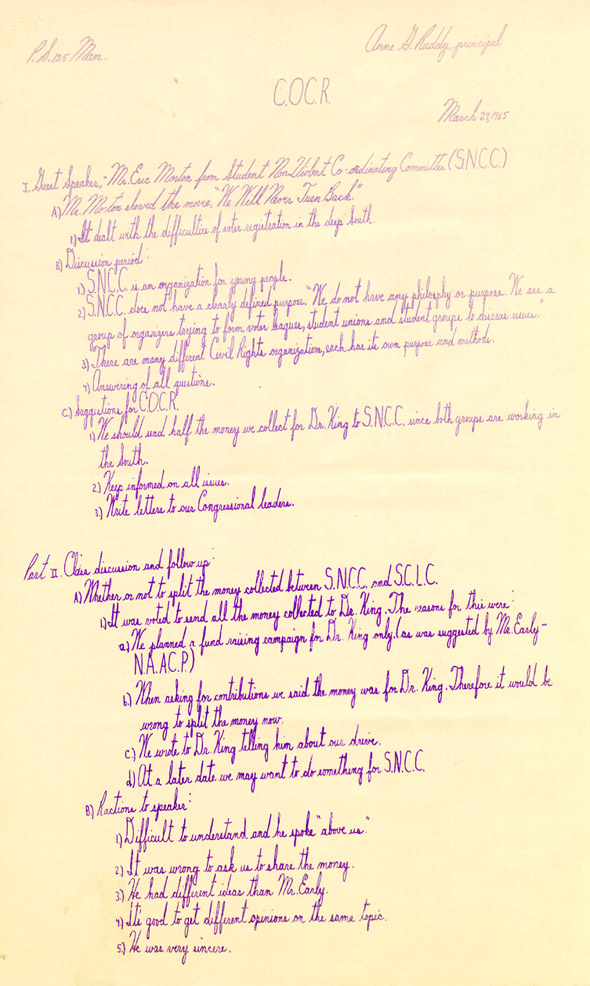 P.S. 125 Man.
Anne G. Ruddy, principal
C.O.C.R.
March 27, 1965
I. Guest Speaker,- Mr. Eric Morton from Student Non-Violent Co-ordinating Committee (S.N.C.C.)
A) Mr. Morton showed the movie, "We Will Never Turn Back."
1) It dealt with the difficulties of voter registration in the deep South.
B) Discussion period:
1) S.N.C.C. is an organization for young people.
2) S.N.C.C. does not have a clearly defined purpose. "We do not have any philosphy or purpose. We are a
group of organizers trying to form voter leagues, student unions and student groups to discuss issues."
3) There are many different Civil Rights organizations, each has its own purpose and methods.
4) Answering of all questions.
C) Suggestions for C.O.C.R.
1) We should send half the money we collect for Dr. King to S.N.C.C. since both groups are working in
the South.
2) Keep informed on all issues.
3) Write letters to our Congressional leaders.
Part II. Class discussion and follow up:
A) Whether or not to split the money collected between S.N.C.C. and S.C.L.C.
1) It was voted to send all the money collected to Dr. King. The reasons for this were:
a) We planned a fund raising campaign for Dr. King only. (as was suggested by Mr. Early-
N.A.A.C.P.)
b) When asking for contributions we said the money was for Dr. King. Therefore it would be
wrong to split the money now.
c) We wrote to Dr. King telling him about our drive.
d) At a later date we may want to do something for S.N.C.C.
B) Ractions to speaker:
1) Difficult to understand and he spoke "above us."
2) It was wrong to ask us to share the money.
3) He had different ideas than Mr. Early.
4) It's good to get different opinions on the same topic.
5.) He was very sincere.